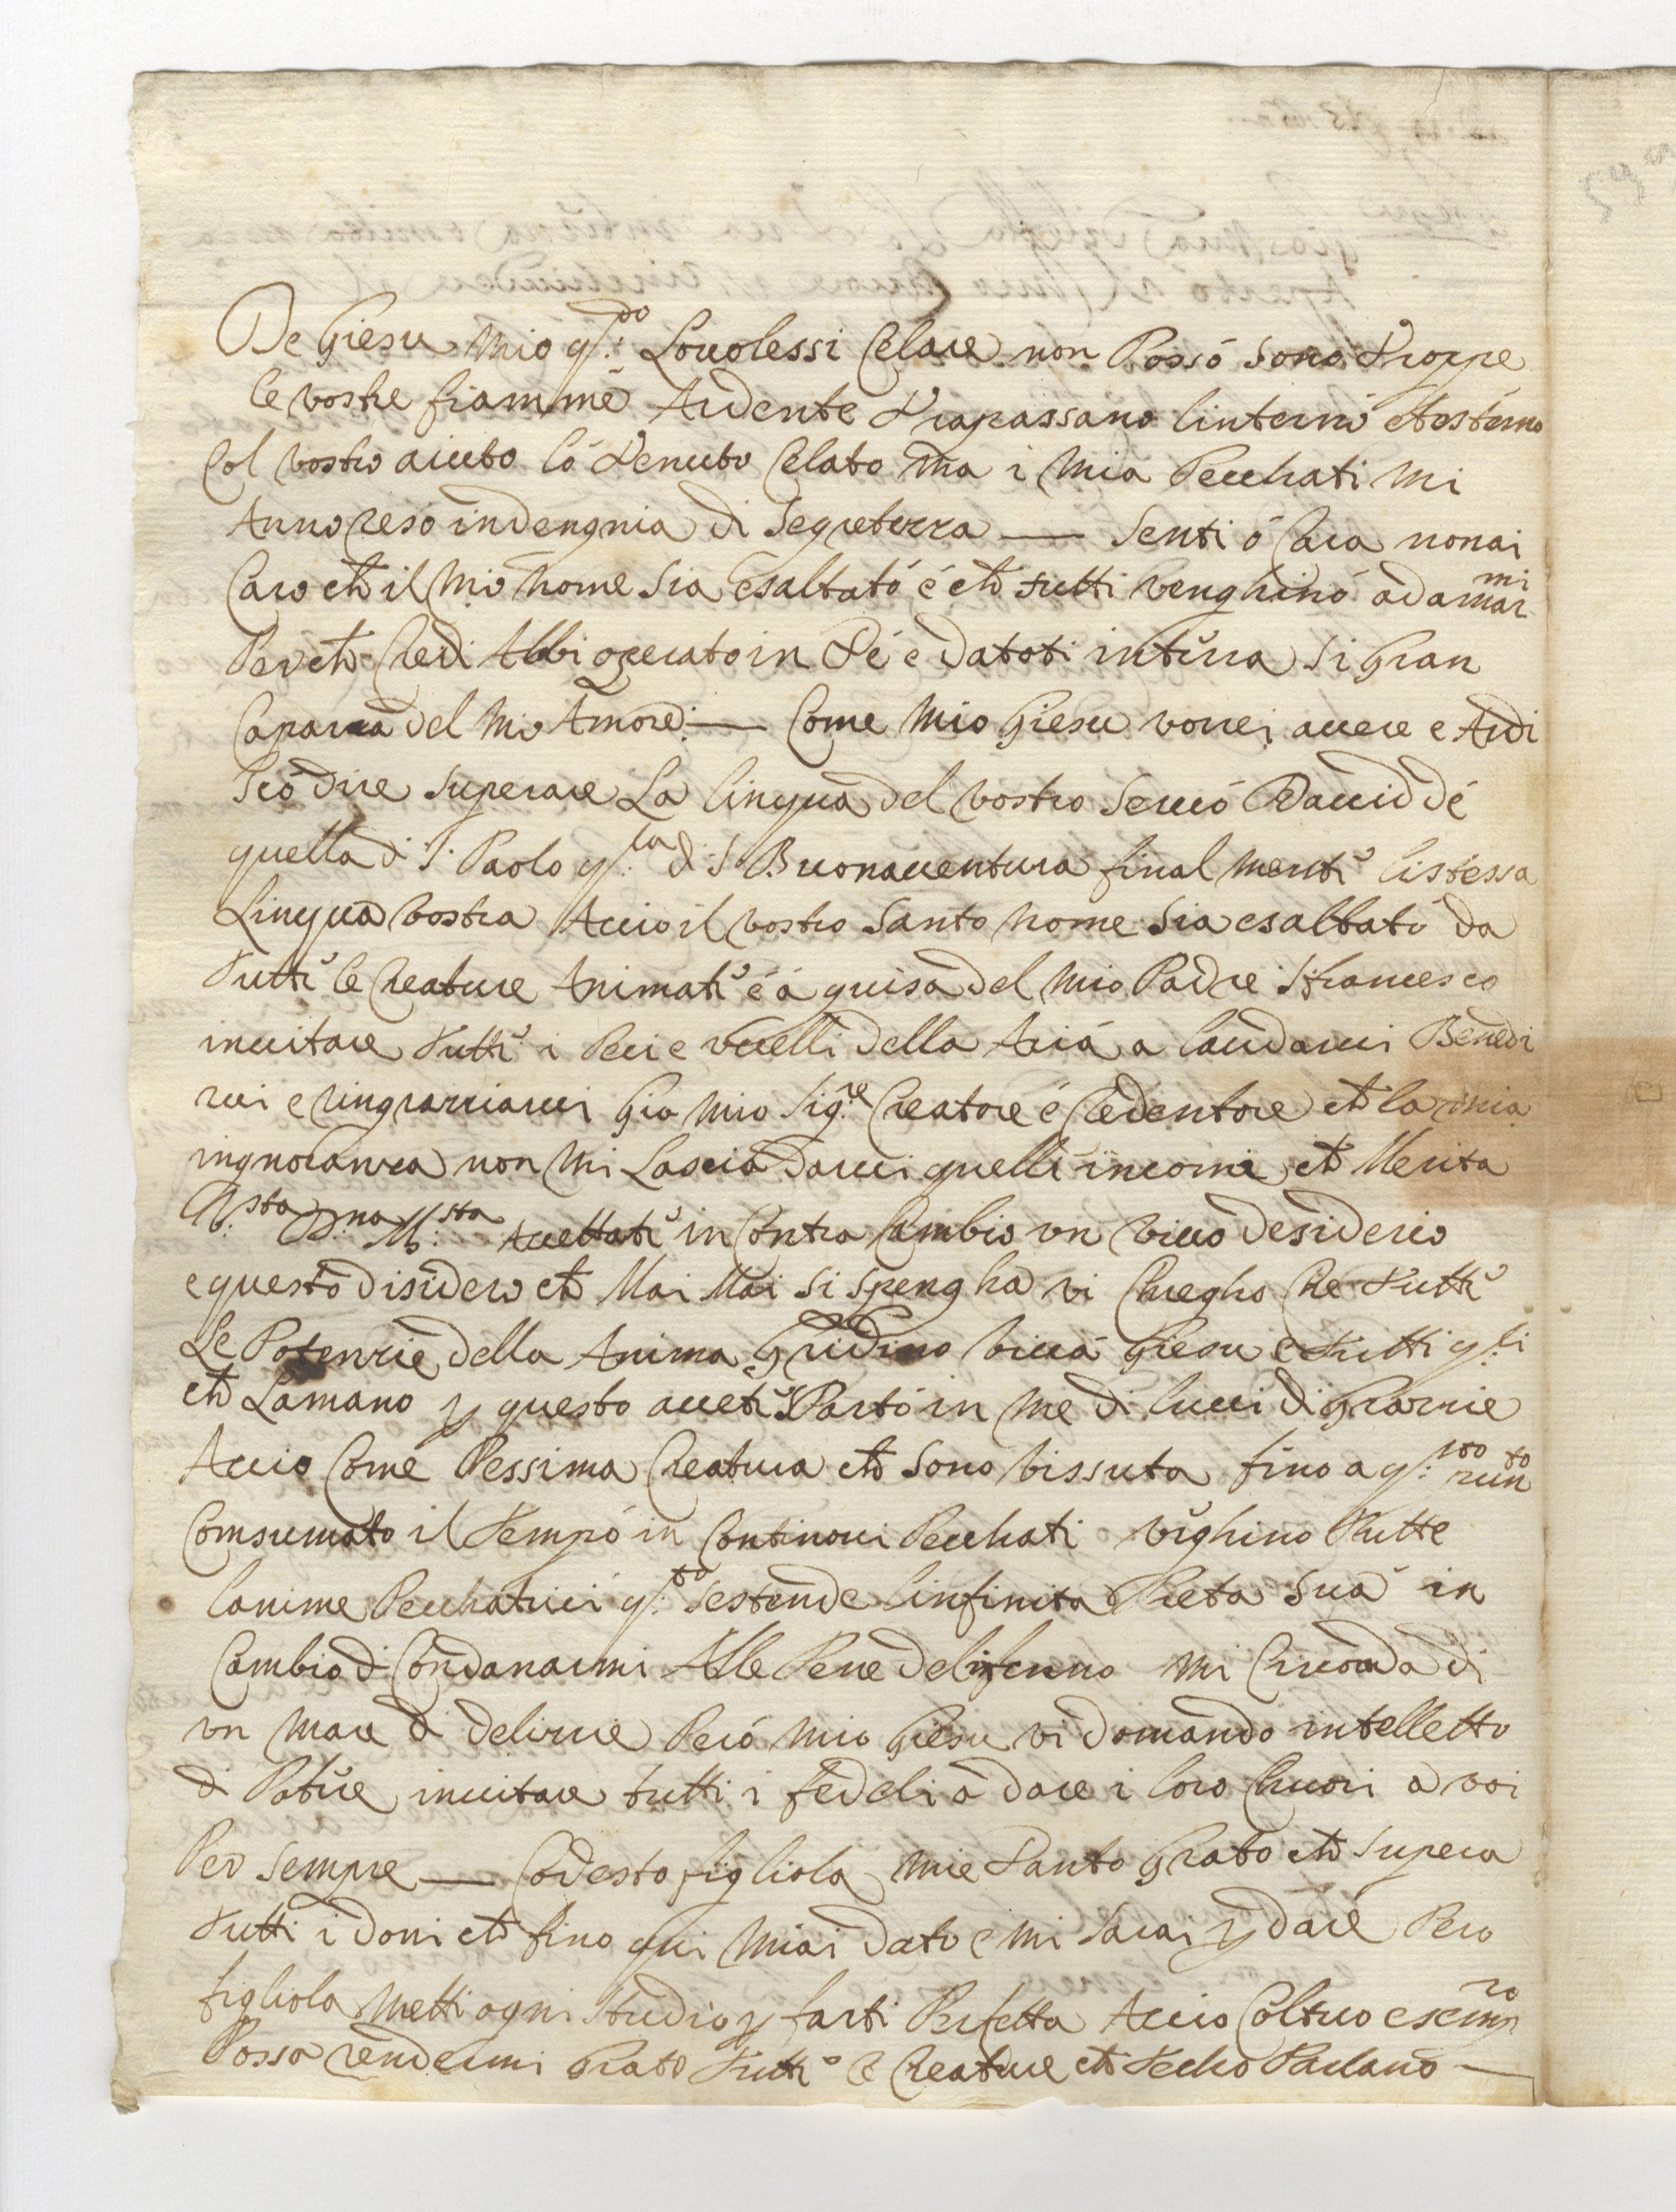 De Giesu mio q.do Lo volessi Celare non Posso sono troppe
le vostre fiamme Ardente trapassano linterno et esterno
Col vostro aiuto lo tenuto Celato ma i mia Pecchati mi
Anno reso indengnia di Segretezza — Senti o Cara non ai
Caro che il Mio nome sia esaltato e che tutti venghino ad amarmi
Perche Credi Abbi operato in te e datoti in terra si gran
Caparra del Mio Amore: — Come Mio Giesu vorrei avere e Ardi
sco dire superare La lingua del vostro servo David de
quella di S. Paolo q.la di S Buonaventura final mente listessa
Lingua vostra Accio il vostro Santo nome sia esaltato da
tutte le Creature Animate e a guisa del mio Padre S francesco
invitare tutti i Pesci e Vcelli della Aria a laudarvi Benedi
rvi e ringrazziarvi Gia mio Sig.re Creatore e Redentore che la mia
ingnoranza non mi Lascia darvi quelli incomi che Merita
V.sta D.na M.sta Accettate in Contra Cambio vn vivo desiderio
e questo disidero che Mai Mai si spengha vi Priegho che tutte
Le Potenzie della Anima Gridino viva Giesu e tutti q.li
che Lamano p questo avete sParto in me di lucei di Grazzie
Accio Come Pessima Creatura che sono vissuta fino a q.sto punto
Comsumato il tempo in Continovi Pecchati veghino tutte
lanime Pecchatrici q.to sestende linfinita Pieta sua in
Cambio di Condanarmi Alle Pene del inferno mi Circonda di
vn mare di delizzie Pero mio Giesu vi domando intelletto
di Potere invitare tutti i fedeli a dare i loro Chuori a voi
Per sempre — Codesto figliola mie tanto Grato che supera
tutti i doni che fino qui miai dato e mi sarai p dare Pero
figliola metti ogni studio p farti Perfetta Accio Col tuo esempro
Possa rendermi Grato tutte le Creature che techo Parlano —